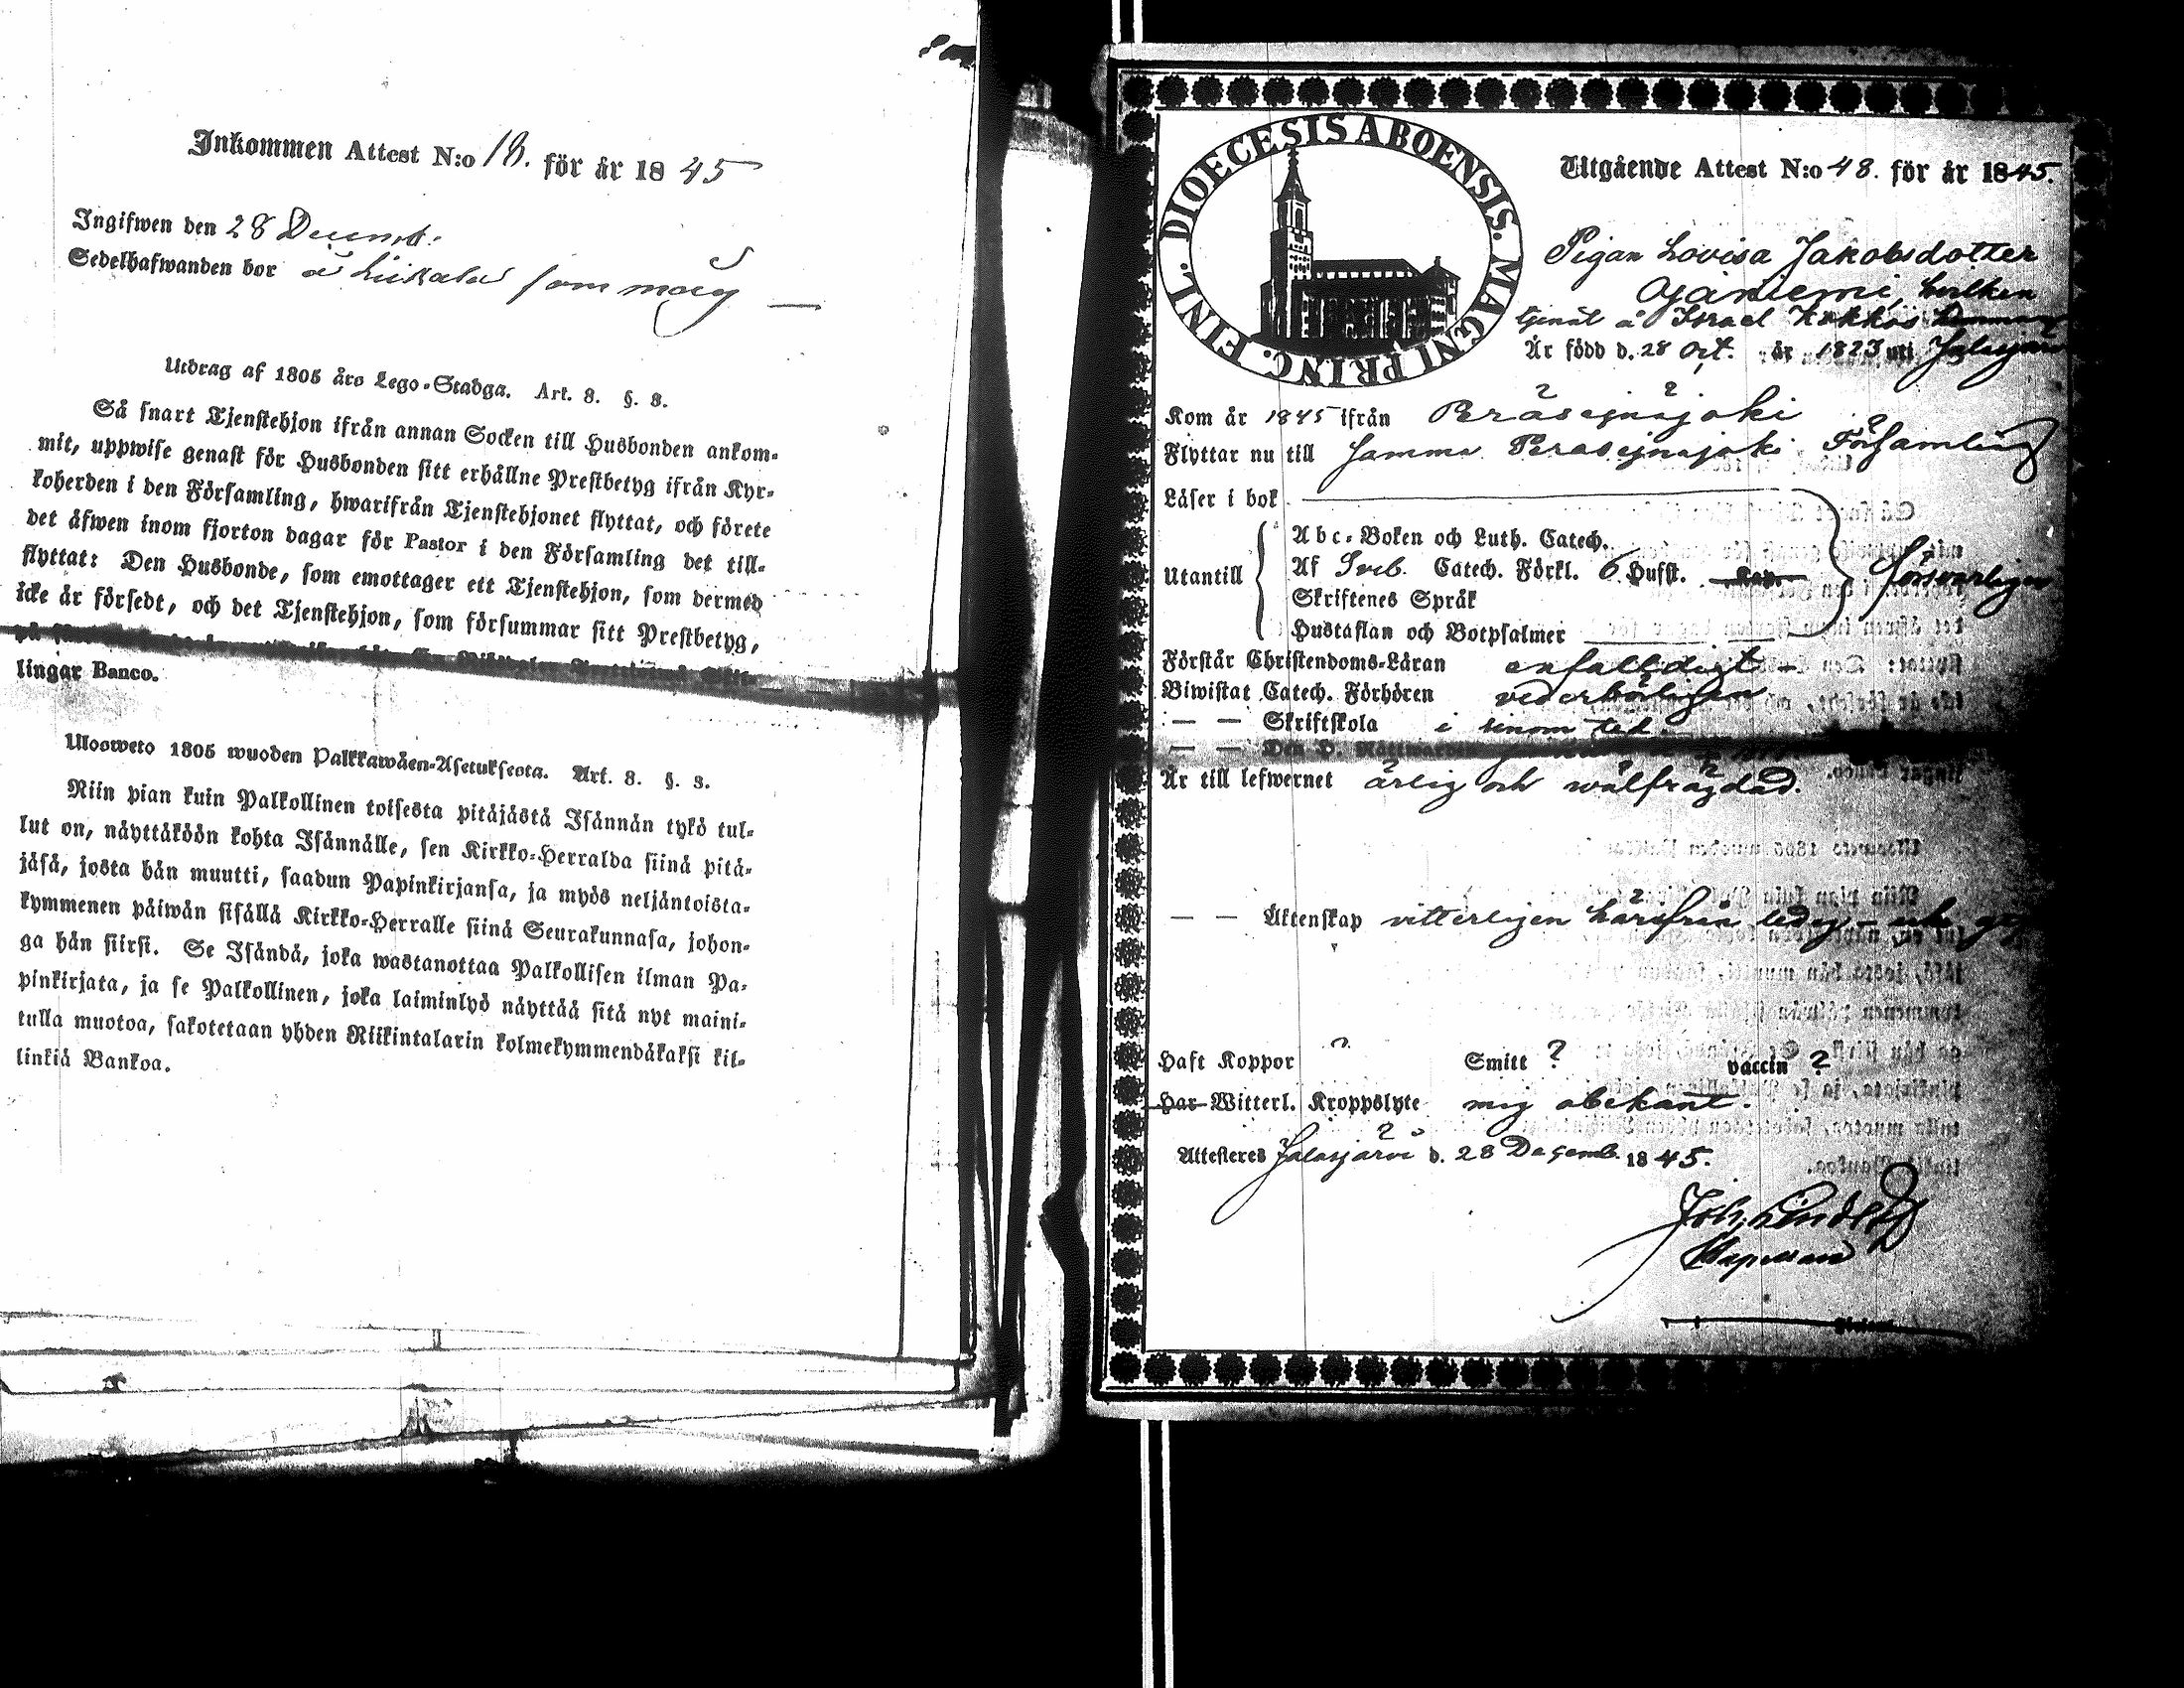 Inkommen Attest N:o 18. för år 1845
Ingifwen den 28 Decemb.
Sedelhafwanden bor å Liikala som måg
Utdrag af 1805 års Lego-Stadga. Art. 8. §. 8.
Så snart Tjenstehjon ifrån annan Socken till Husbonden ankom-
mit, uppwise genast för Husbonden sitt erhållne Prestbetyg ifrån Kyr-
koherden i den Församling, hwarifrån Tjenstehjonet flyttat, och förete
det äfwen inom fjorton dagar för Pastor i den Församling det till-
flyttat: Den Husbonde, som emottager ett Tjenstehjon, som dermed
icke är försedt, och det Tjenstehjon, som försummar sitt Prestbetyg,
på
lingar Banco.
Ulosweto 1805 wuoden Palkkawäen-Asetuksesta. Art. 8. §. 8.
Niin pian kuin Palkollinen toisesta pitäjästä Isännän tykö tul-
lut on, näyttäköön kohta Isännälle, sen Kirkko-Herralda siinä pitä-
jäsä, josta hän muutti, saadun Papinkirjansa, ja myös neljäntoista-
kymmenen päiwän sisällä Kirkko-Herralle siinä Seurakunnasa, johon-
ga hän siirsi. Se Isändä, joka wastanottaa Palkollisen ilman Pa-
pinkirjata, ja se Palkollinen, joka laiminlyö näyttää sitä nyt maini-
tulla muotoa, sakotetaan yhden Riikintalarin kolmekymmendäkaksi kil-
linkiä Bankoa.
DIOECESIS ABOENSIS. MAGNI PRINC. FINL.
Utgående Attest N:o 48. för år 1845.
Pigan Lovisa Jakobsdotter
Ojaniemi, hvilken
tjenat å Israel Kokkos
Är född d. 28 Oct. år 1823 uti Jalasjärvi
Kom år 1845 ifrån Peräsejnäjoki
Flyttar nu till samma Peräsejnäjoki Församling
Läser i bok
Abc-Boken och Luth. Catech.
Utantill Af Sveb. Catech. Förkl. 6 Hufst. Kap. försvarligen
Skriftenes Språk
Hustaflan och Botpsalmer
Förstår Christendoms-Läran enfalldigt
Biwistat Catech. Förhören vederbörligen
— — Skriftskola i sinom tid.
— — Den H. Nattwarden
Är till lefwernet ärlig och wälfrägdad.
— — Äktenskap vitterligen härifrån ledig
Haft Koppor ? Smitt ? vaccin ?
Har Witterl. Kroppslyte mig obekant.
Attesteres Jalasjärvi d. 28 Decemb. 1845.
Joh. Lindstedt
Kapellan